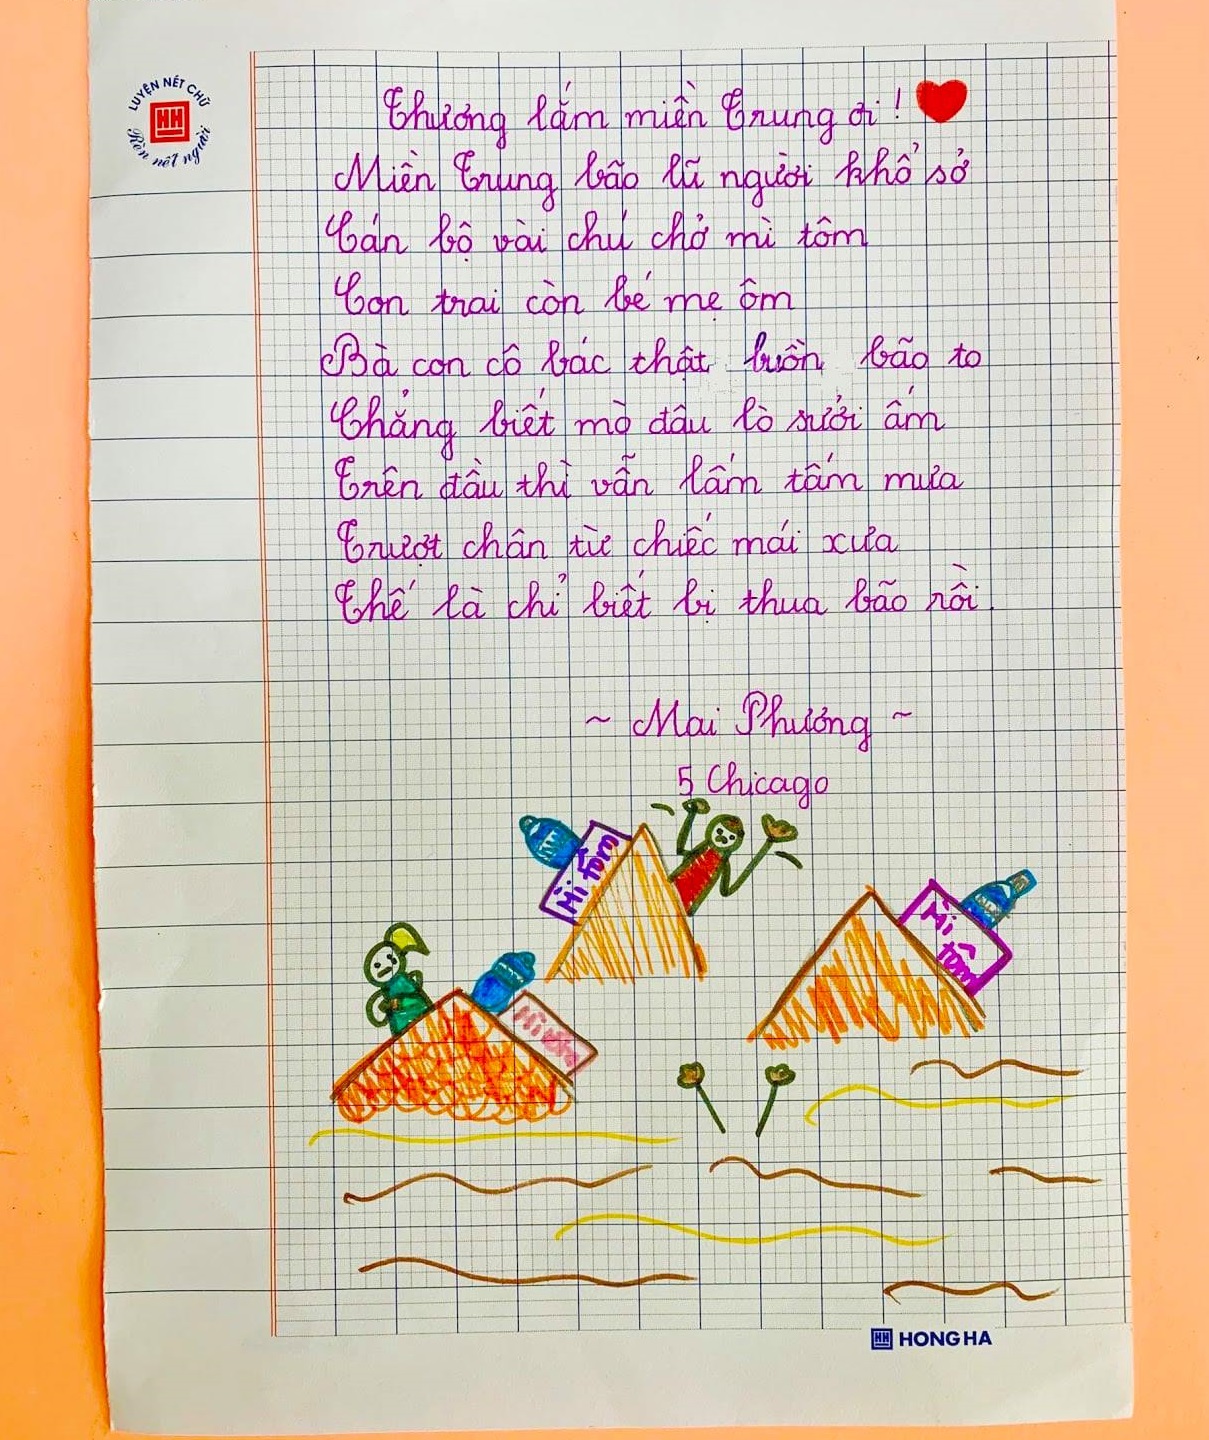 LUYỆN NÉT CHỮ
HH
Rèn nết người
Thương lắm miền Trung ơi!
Miền Trung bão lũ người khổ sở
Cán bộ vài chú chở mì tôm
Con trai còn bé mẹ ôm
Bà con cô bác thật buồn bão to
Chẳng biết mò đâu lò sưởi ấm
Trên đầu thì vẫn lấm tấm mưa
Trượt chân từ chiếc mái xưa
Thế là chỉ biết bị thua bão rồi.
~ Mai Phương ~
5 Chicago
Mì tôm
Mì tôm
Mì tôm
HH HONG HA